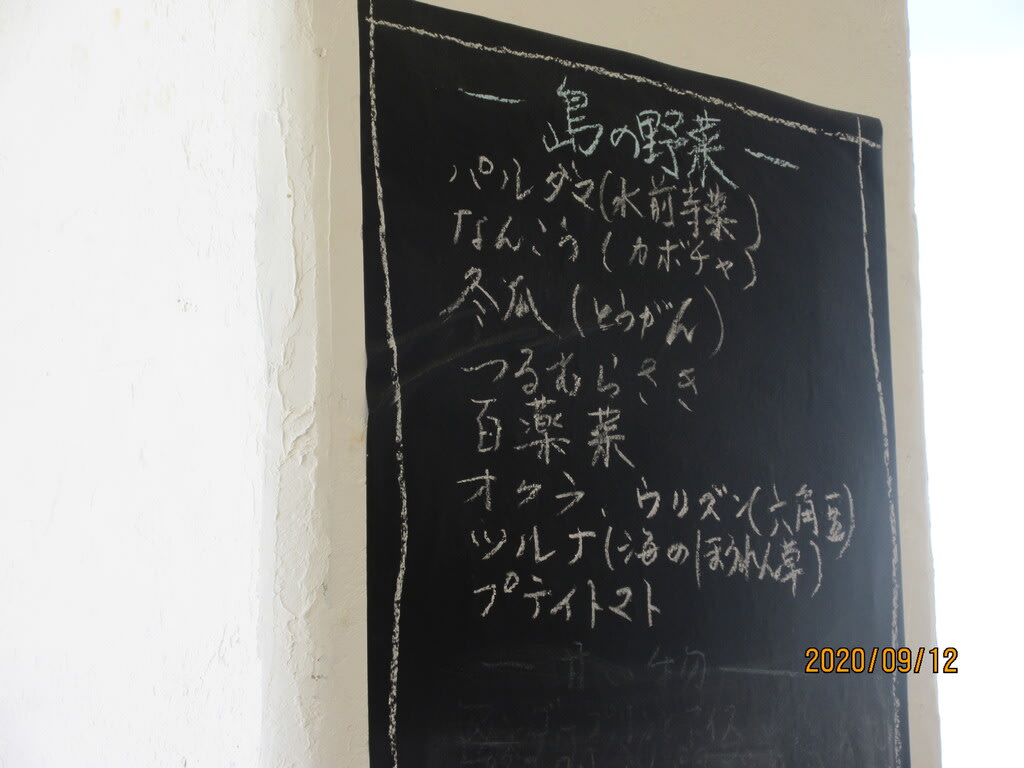 ― 島の野菜 ―
パルダマ(水前寺菜)
なんこう(カボチャ)
冬瓜(とうがん)
つるむらさき
百薬菜
オクラ、ウリズン(六角豆)
ツルナ(海のほうれん草)
プティトマト
2020/09/12